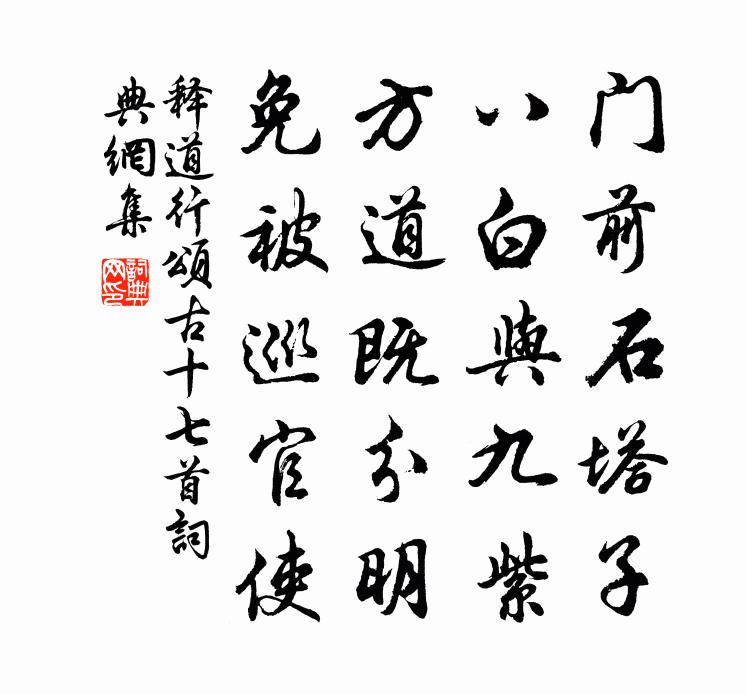 门前石塔子
八白與九紫
方道既分明
免被巡官使
释道行頌古十七首詞
典網集
詞典网印